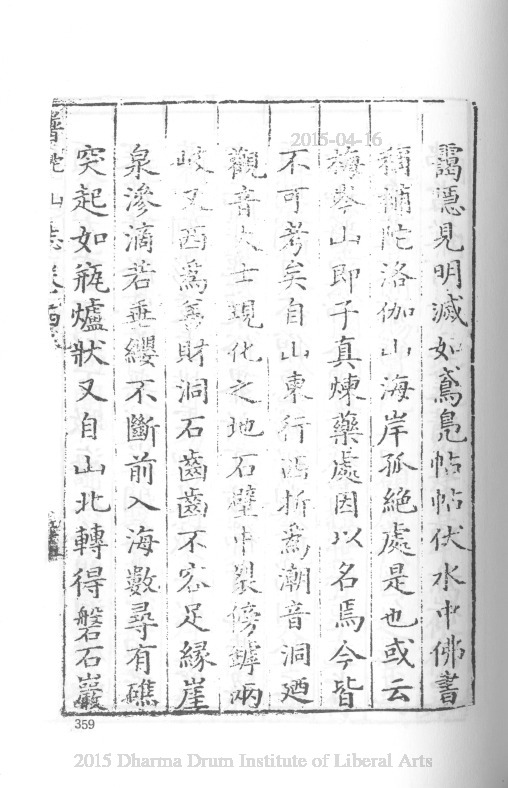 靄隱見明滅如鳶鳧帖帖伏水中佛書
稱補陀洛伽山海岸孤絕處是也或云
梅岑山即子真煉藥處因以名焉今皆
不可考矣自山東行西折為潮音洞迺
觀音大士現化之地石壁中裂傍罅兩
岐又西為善財洞石齒齒不容足緣崖
泉滲滴若垂纓不斷前入海數尋有礁
突起如瓶爐狀又自山北轉得磐石巖
普陀山志卷
2015-04-16
359
2015 Dharma Drum Institute of Liberal Arts